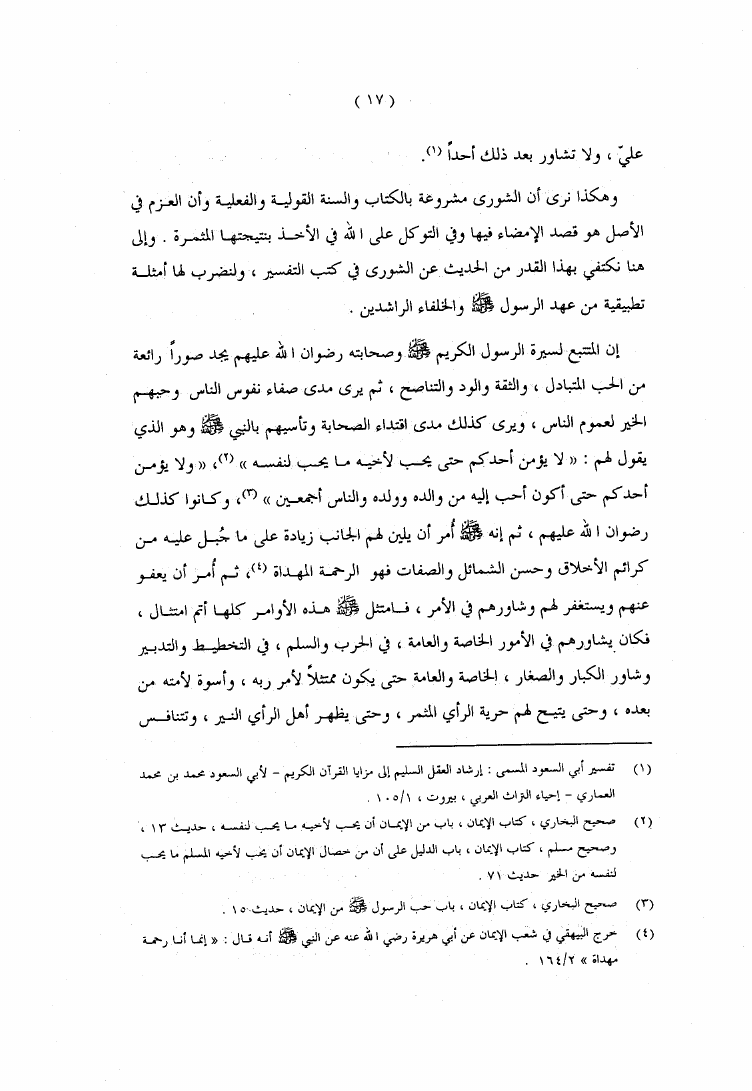 ( ١٧ )
عليّ ، ولا تشاور بعد ذلك أحداً (١).
وهكذا نرى أن الشورى مشروعة بالكتاب والسنة القولية والفعلية وأن العزم في
الأصل هو قصد الإمضاء فيها وفي التوكل على الله في الأخذ بنتيجتها المثمرة . وإلى
هنا نكتفي بهذا القدر من الحديث عن الشورى في كتب التفسير ، ولنضرب لها أمثلة
تطبيقية من عهد الرسول ﷺ والخلفاء الراشدين .
إن المتتبع لسيرة الرسول الكريم ﷺ وصحابته رضوان الله عليهم يجد صوراً رائعة
من الحب المتبادل ، والثقة والود والتناصح ، ثم يرى مدى صفاء نفوس الناس وحبهم
الخير لعموم الناس ، ويرى كذلك مدى اقتداء الصحابة وتأسيهم بالنبي ﷺ وهو الذي
يقول لهم : « لا يؤمن أحدكم حتى يحب لأخيه ما يحب لنفسه » (٢)، « ولا يؤمن
أحدكم حتى أكون أحب إليه من والده وولده والناس أجمعين » (٣)، وكانوا كذلك
رضوان الله عليهم ، ثم إنه ﷺ أُمر أن يلين لهم الجانب زيادة على ما جُبل عليه من
كرائم الأخلاق وحسن الشمائل والصفات فهو الرحمة المهداة (٤)، ثم أُمر أن يعفو
عنهم ويستغفر لهم وشاورهم في الأمر ، فامتثل ﷺ هذه الأوامر كلها أتم امتثال ،
فكان يشاورهم في الأمور الخاصة والعامة ، في الحرب والسلم ، في التخطيط والتدبير
وشاور الكبار والصغار ، الخاصة والعامة حتى يكون ممتثلاً لأمر ربه ، وأسوة لأمته من
بعده ، وحتى يتيح لهم حرية الرأي المثمر ، وحتى يظهر أهل الرأي النير ، وتتنافس
(١) تفسير أبي السعود المسمى : إرشاد العقل السليم إلى مزايا القرآن الكريم – لأبي السعود محمد بن محمد
العماري – إحياء التراث العربي ، بيروت ، ١٠٥/١ .
(٢) صحيح البخاري ، كتاب الإيمان ، باب من الإيمان أن يحب لأخيه ما يحب لنفسه ، حديث ١٣ ،
وصحيح مسلم ، كتاب الإيمان ، باب الدليل على أن من خصال الإيمان أن يحب لأخيه المسلم ما يحب
لنفسه من الخير حديث ٧١ .
(٣) صحيح البخاري ، كتاب الإيمان ، باب حب الرسول ﷺ من الإيمان ، حديث ١٥ .
(٤) خرج البيهقي في شعب الإيمان عن أبي هريرة رضي الله عنه عن النبي ﷺ أنه قال : « إنما أنا رحمة
مهداة » ١٦٤/٢ .